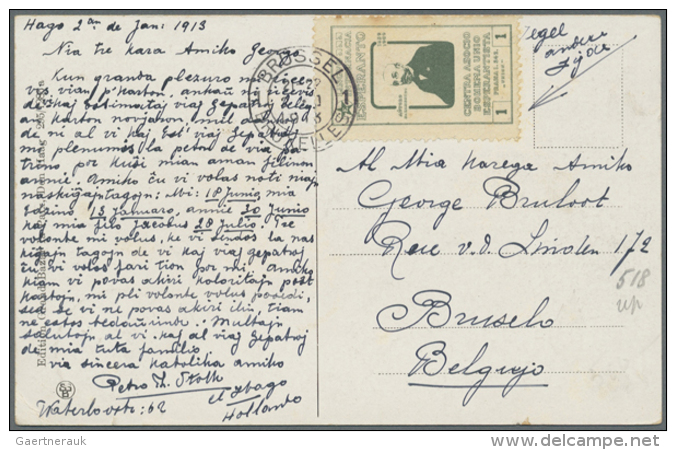 Hago 2an de Jan: 1913
Nia tre kara Amiko George
Kun granda plezuro mi ricevis
vian p'karton, ankaŭ ni ricevis
de kaj estimataj viaj gepatroj
an karton novjaron, mil
de ni al vi kaj est' viaj gepatroj
mi plenumos la peton de via patrino por kisi mian aman filinon
annie. Amiko ĉu vi volas noti niajn
naskiĝajn tagojn: Mi: 18 Junio, mia
Edzino 13 Januaro, annie 30 Junio
kaj mia filo Jacobus 28 Julio. Tre
volonte mi volus, ke vi sendos la naskiĝajn tagojn de vi kaj viaj gepatroj
ĉu vi volos fari tion por mi, amiko
kiam vi povas akiri koloritajn poŝt
kartojn, mi pli volonte volus posedi,
sed se vi ne povas akiri ilin, tiam
ne estos
Multajn
salutojn al vi kaj al viaj gepatroj
de mia tuta familio
via sincera katolika amiko
Petro Th. Stolk
el s'Hago
Hollando
Waterloostr: 62
BRUSSEL
BRUXELLES
ESPERANTO
CENTRA ASOCIO
BOHEMA UNIO
ESPERANTISTA
PRAHA
1
1
Zegel
andere
zijde
Al Mia Karega Amiko
George Bruloot
Rue v.d. Linden 172
Bruselo
Belgujo
518
Gaertnerauk
www.delcampe.net